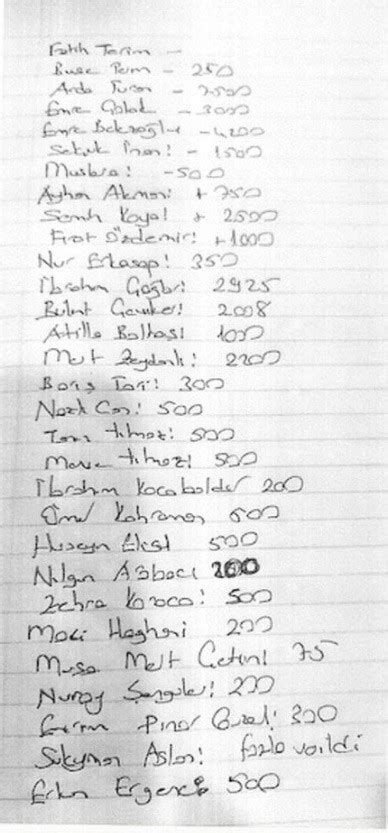 Fatih Terim -
Buse Terim - 250
Arda Turan - 2500
Emre Çolak - 3000
Emre Belözoğlu -4200
Selçuk İnan: - 1500
Muslera: -500
Ayhan Akman: + 750
Semih Kaya: + 2500
Fırat Özdemir: +1000
Nur Erkasap: 350
İbrahim 2925
Bülent 2008
Atilla Baltaş: 1000
Mert Zeydanlı: 2200
Barış 300
Nazlı Can: 500
Yılmaz: 500
Merve Yılmaz: 500
İbrahim Kocabalder 200
Ömer Kahraman 600
Hüseyin 500
Nilgün 200
Zehra Karaca: 500
200
Musa Mert Çetin: 75
Nuray Şengüler: 200
Pınar Güzel: 300
Süleyman Aslan: fazla
Erkan Ergenç 500